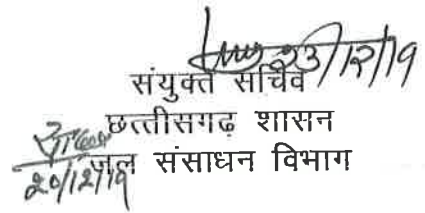 23/12/19
संयुक्त सचिव
छत्तीसगढ़ शासन
जल संसाधन विभाग
20/12/19